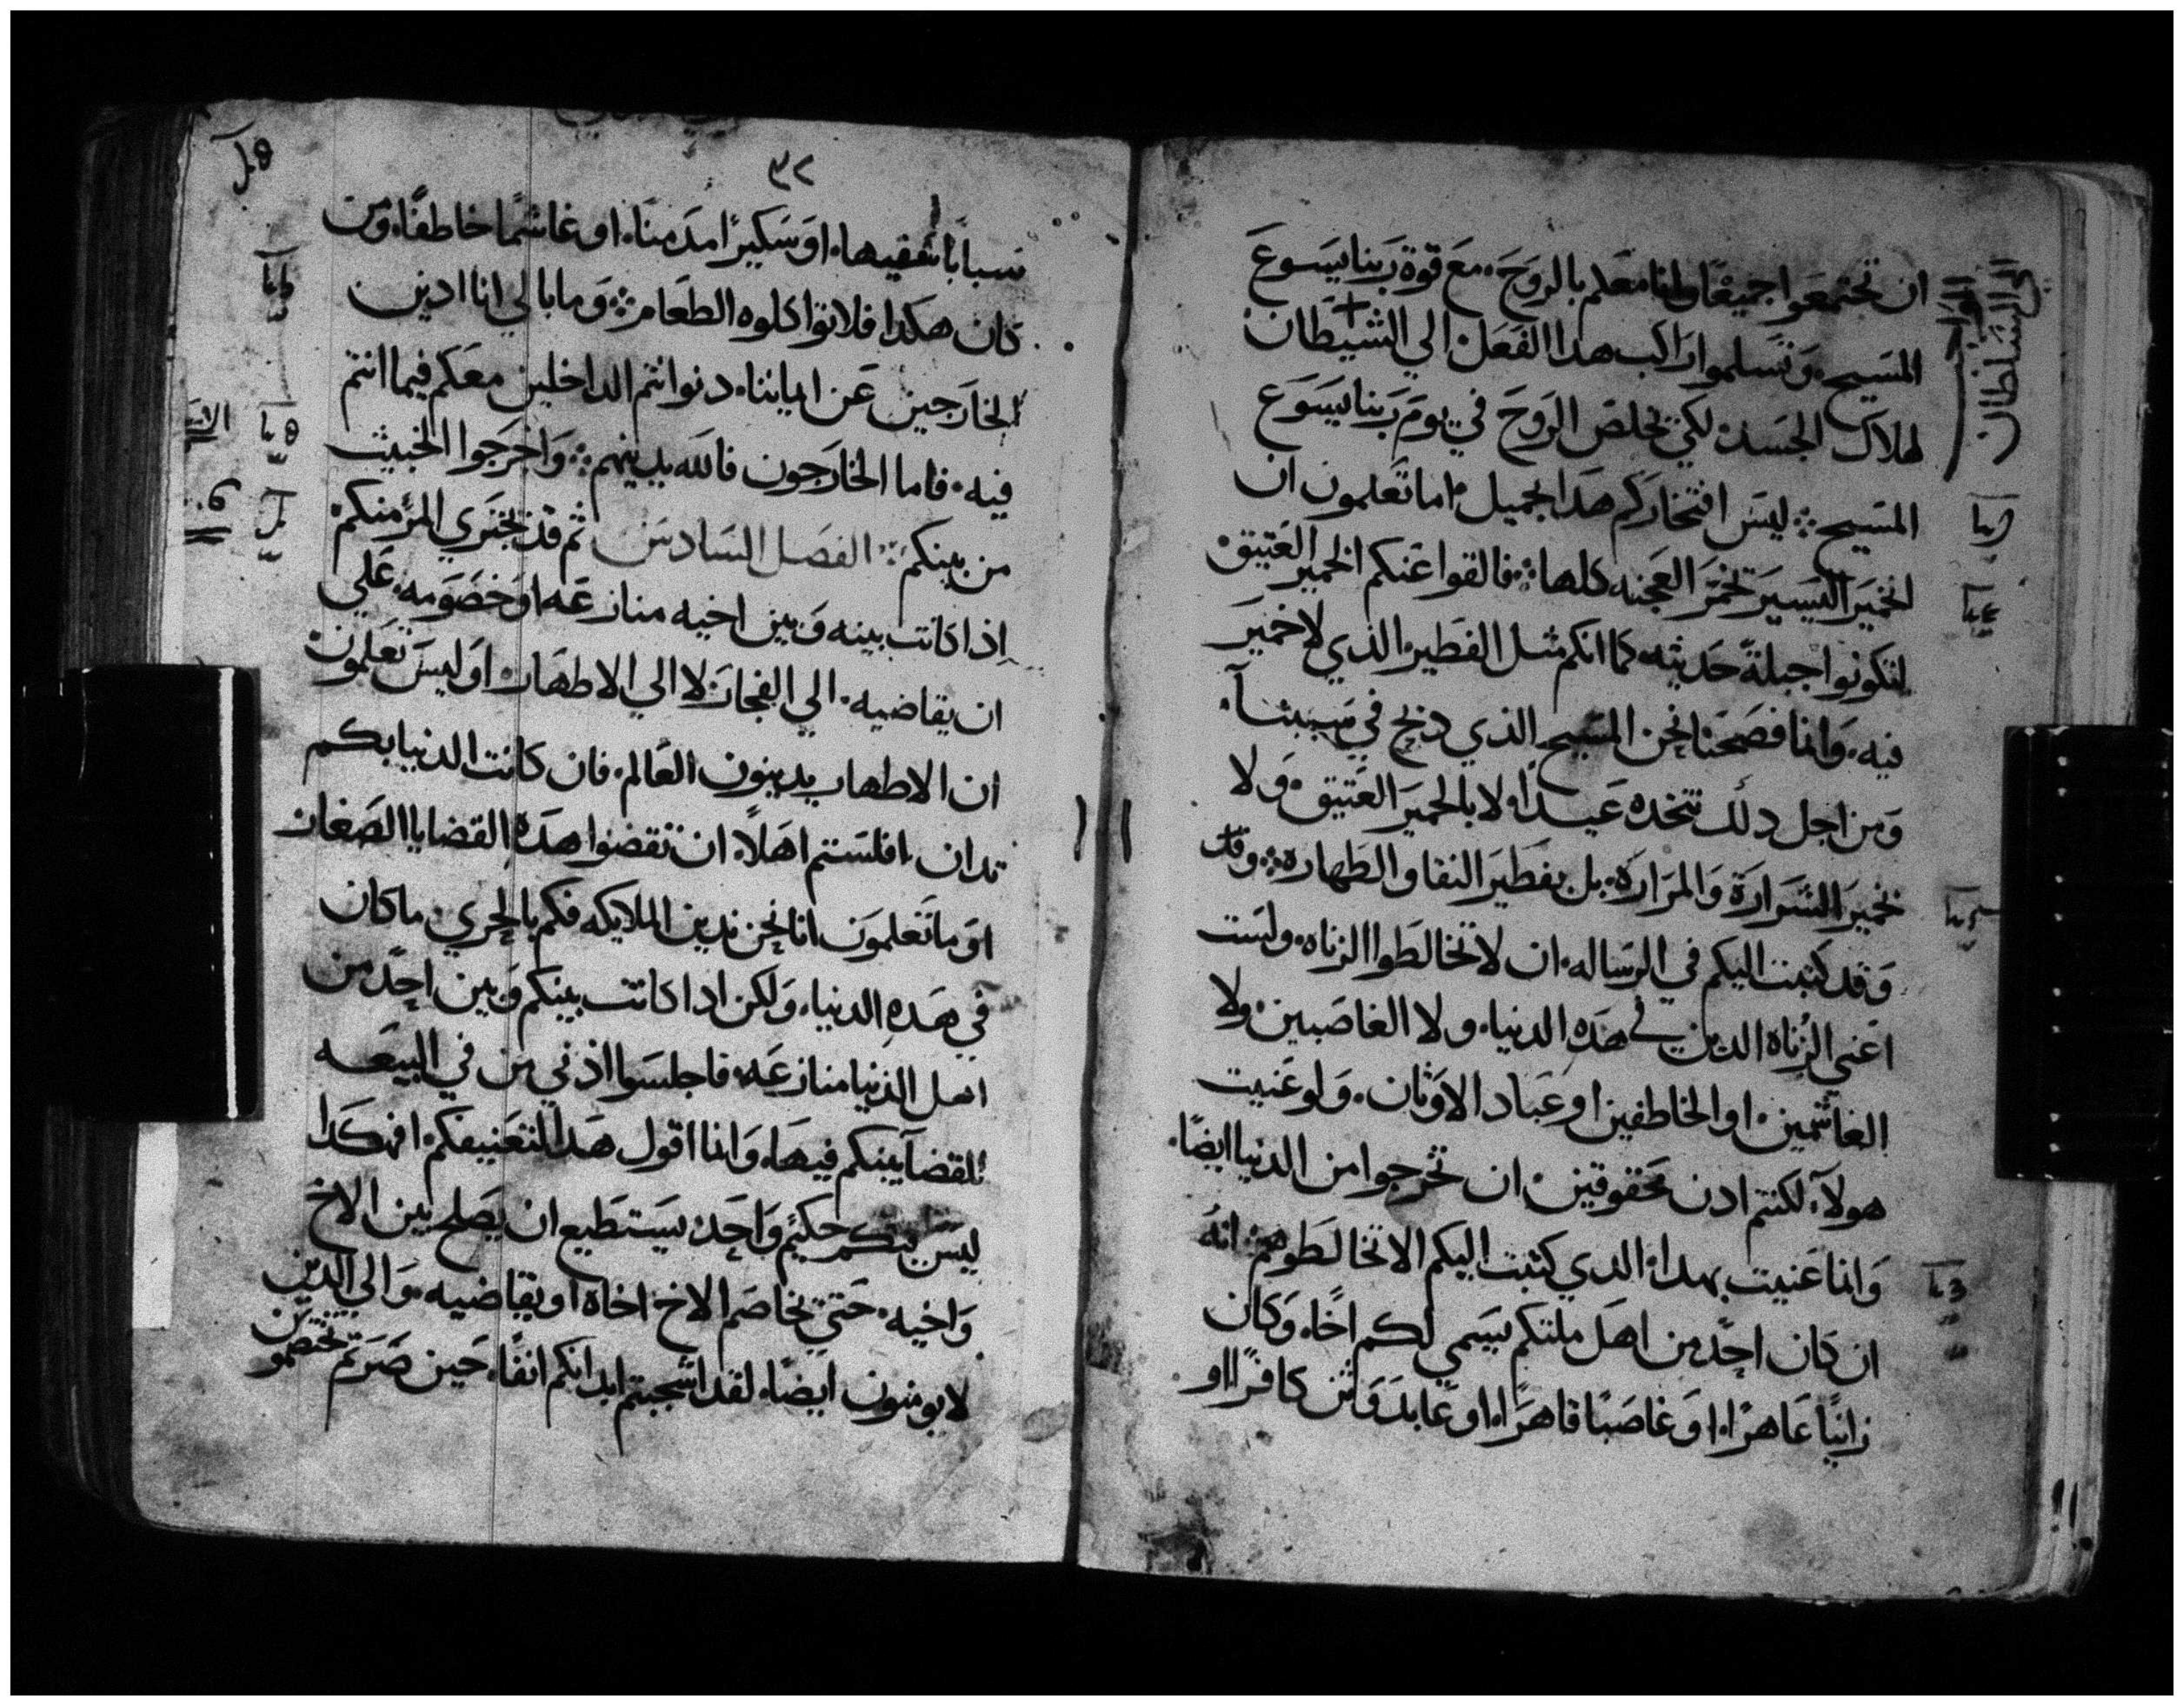 ان تجتمعوا جميعًا وانا معكم بالروح، مع قوة ربنا يسوع
المسيح، وتسلموا راكب هدا الفعل الي الشيطان
لهلاك الجسد، لكي يخلص الروح في يوم ربنا يسوع
المسيح ۞ ليس افتخاركم هدا بجميل، اما تعلمون ان
الخمير اليسير تخمر العجنه كلها ۞ فالقوا عنكم الخمير العتيق،
لتكونوا جبلةً حديثه كما انكم مثل الفطير الذي لا خمير
فيه، وانما فصحنا نحن المسيح الذي دبح في سببنا،
ومن اجل دلك نتخده عيدًا، لا بالخمير العتيق، ولا
بخمير الشرارة والمرارة، بل بفطير النقا والطهارة ۞ وقد
وقد كتبت اليكم في الرساله، ان لا تخالطوا الزناه، ولست
اعني الزناة الدين في هذه الدنيا، ولا الغاصبين ولا
الغاشمين، او الخاطفين او عباد الاوثان، ولو عنيت
هولآ، لكنتم ادن محقوقين، ان تخرجوا من الدنيا ايضًا،
وانما عنيت بهدا، الدي كتبت اليكم الا تخالطوهم، انه
ان كان احدٌ من اهل ملتكم يسمي لكم اخًا، وكان
زانيًا عاهرًا، او غاصبًا قاهرًا، او عابد وثن كافرًا، او
السلطان
٣٢
سبابًا سفيها، او سكيرًا مدمنًا، او غاشمًا خاطفًا، ومن
كان هكدا فلا تواكلوه الطعام ۞ وما بالي انا ادين
الخارجين عن ايماننا، دنوا انتم الداخلين معكم فيما انتم
فيه، فاما الخارجون فالله يدينهم ۞ واخرجوا الخبيث
من بينكم ۞ الفصل السادس ثم قد يجتري المرؤ منكم
اذا كانت بينه وبين اخيه منازعه او خصومه، علي
ان يقاضيه، الي الفجار، لا الي الاطهار، او ليس تعلمون
ان الاطهار يدينون العالم، فان كانت الدنيا بكم
تدان، افلستم اهلاً، ان تقضوا هده القضايا الصغار
او ما تعلمون انا نحن ندين الملايكه فكم بالحري ما كان
في هده الدنيا، ولكن ادا كانت بينكم وبين احدٍ من
اهل الدنيا منازعه، فاجلسوا اذني من في البيعه
للقضآ بينكم فيها، وانما اقول هدا لتعنيفكم، افهكدا
ليس فيكم حكيمٌ واحد، يستطيع ان يصلح بين الاخ
واخيه، حتي يخاصم الاخ اخاه او يقاضيه، والي الدين
لا يومنون ايضًا، لقد اشجبتم ابدانكم انفًا، حين صرتم تختصمون